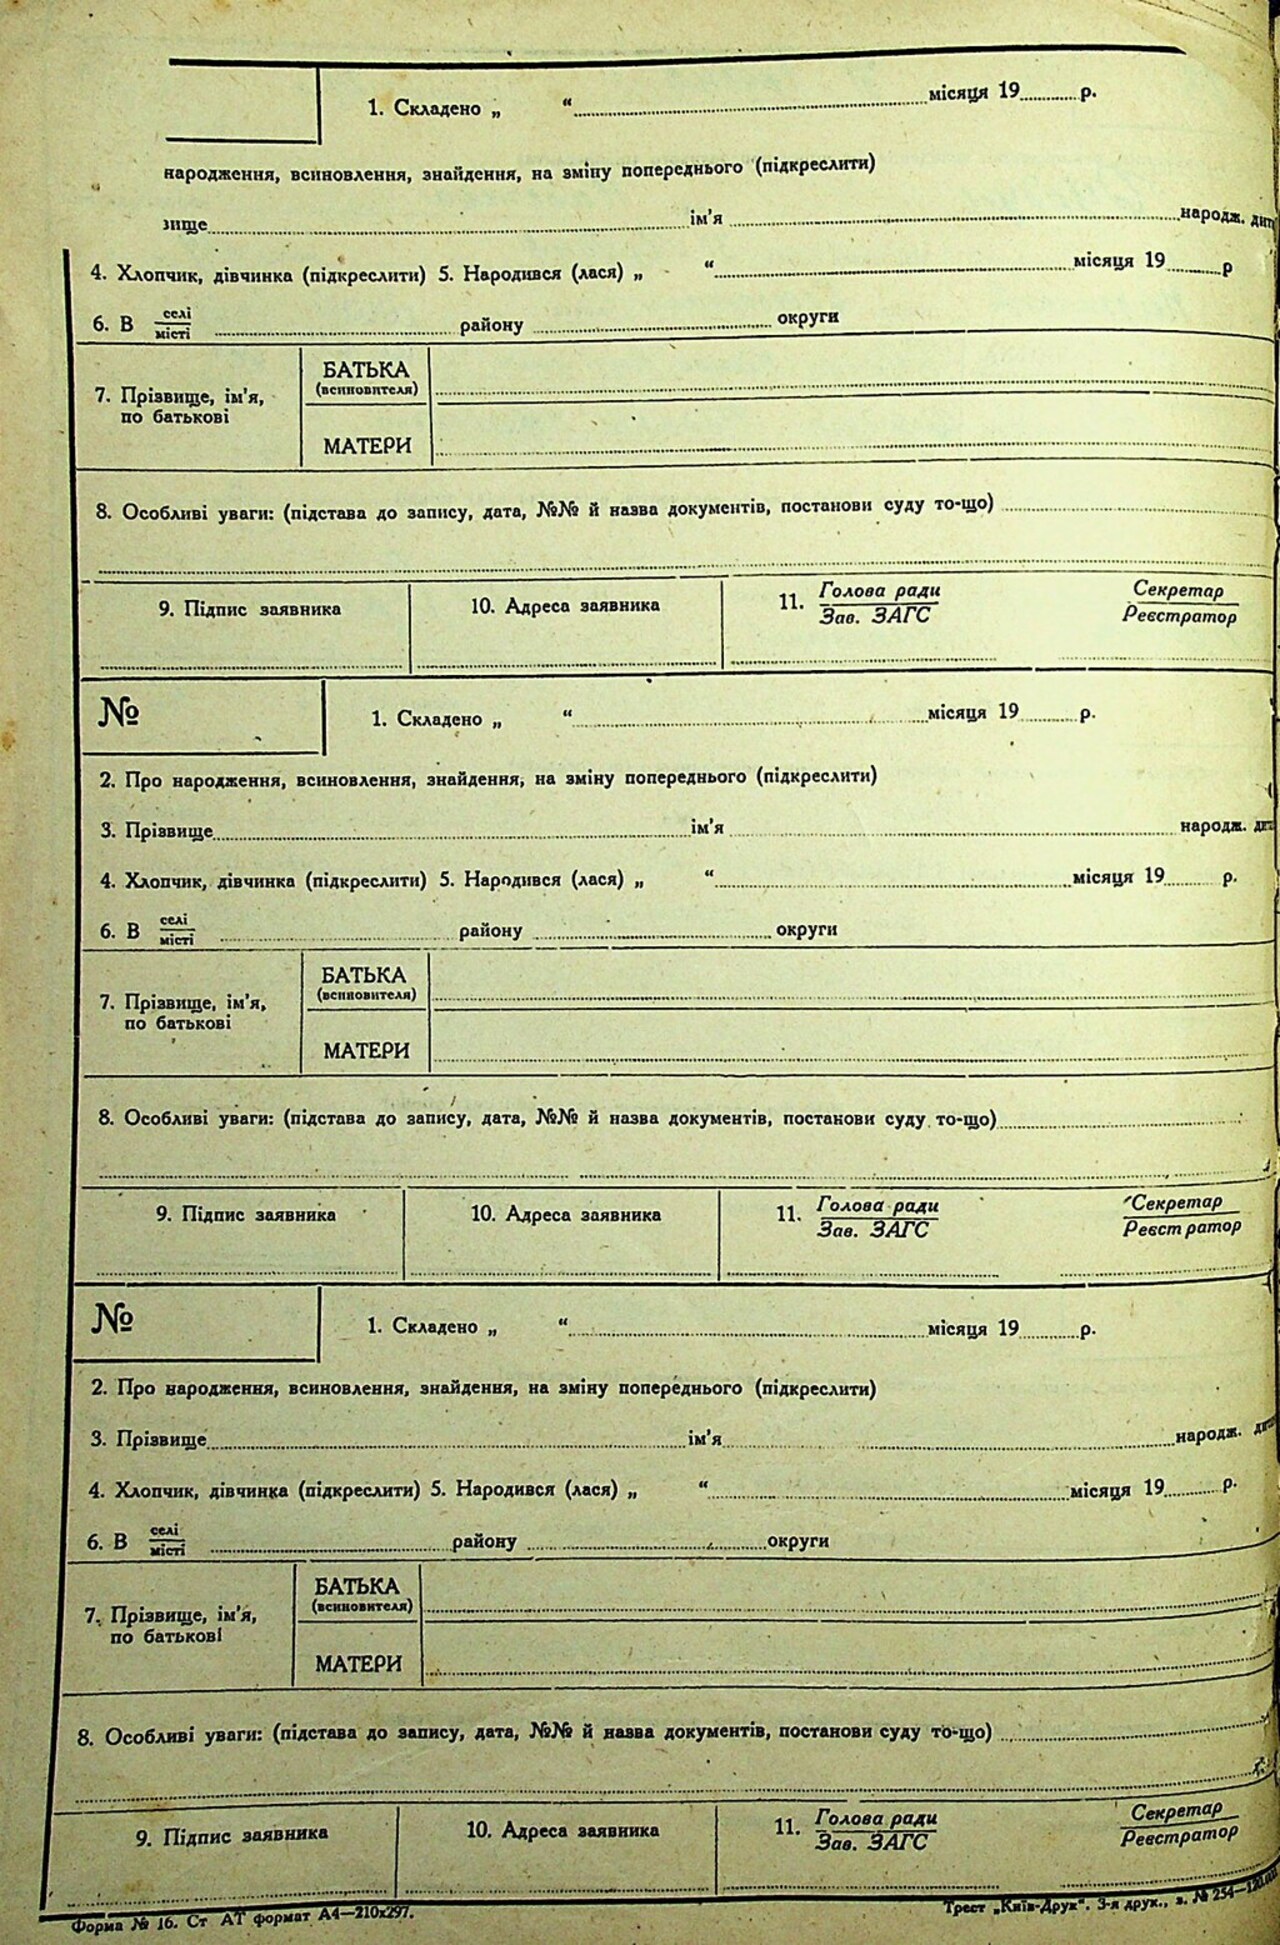 1. Складено „ “ місяця 19 р.
народження, всиновлення, знайдення, на зміну попереднього (підкреслити)
зище ім'я народж.
4. Хлопчик, дівчинка (підкреслити) 5. Народився (лася) „ “ місяця 19 р
6. В селі
місті району округи
БАТЬКА
(всиновителя)
7. Прізвище, ім'я,
по батькові
МАТЕРИ
8. Особливі уваги: (підстава до запису, дата, №№ й назва документів, постанови суду то-що)
9. Підпис заявника 10. Адреса заявника 11. Голова ради Секретар
Зав. ЗАГС Реєстратор
№ 1. Складено „ “ місяця 19 р.
2. Про народження, всиновлення, знайдення, на зміну попереднього (підкреслити)
3. Прізвище ім'я народж.
4. Хлопчик, дівчинка (підкреслити) 5. Народився (лася) „ “ місяця 19 р.
6. В селі
місті району округи
БАТЬКА
(всиновителя)
7. Прізвище, ім'я,
по батькові
МАТЕРИ
8. Особливі уваги: (підстава до запису, дата, №№ й назва документів, постанови суду то-що)
9. Підпис заявника 10. Адреса заявника 11. Голова ради Секретар
Зав. ЗАГС Реєстратор
№ 1. Складено „ “ місяця 19 р.
2. Про народження, всиновлення, знайдення, на зміну попереднього (підкреслити)
3. Прізвище ім'я народж.
4. Хлопчик, дівчинка (підкреслити) 5. Народився (лася) „ “ місяця 19 р.
6. В селі
місті району округи
БАТЬКА
(всиновителя)
7. Прізвище, ім'я,
по батькові
МАТЕРИ
8. Особливі уваги: (підстава до запису, дата, №№ й назва документів, постанови суду то-що)
9. Підпис заявника 10. Адреса заявника 11. Голова ради Секретар
Зав. ЗАГС Реєстратор
Форма № 16. Ст АТ формат А4—210х297. Трест „Київ-Друк“. 3-я друк., з. № 254—